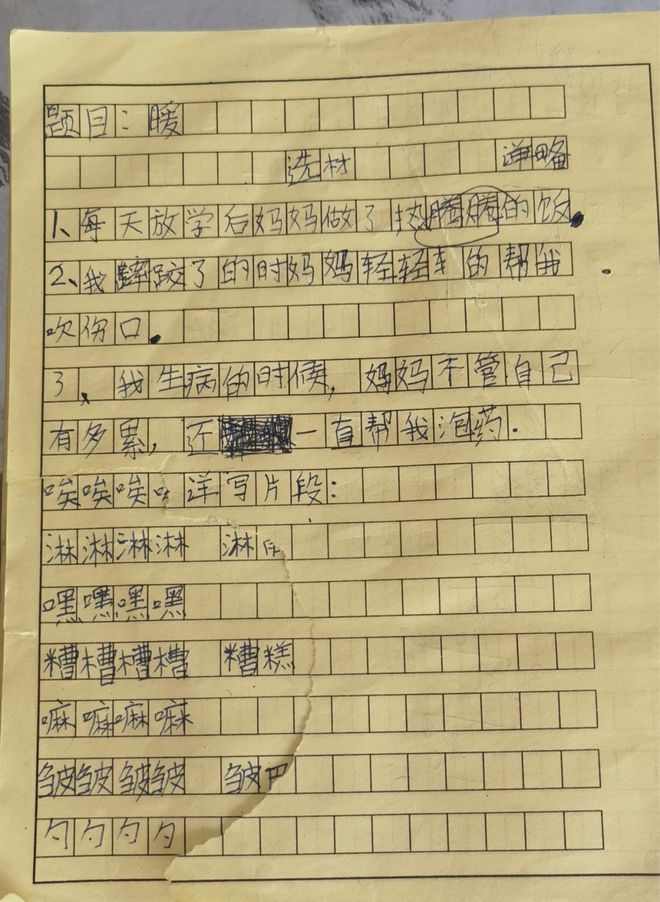 题目：暖
选材 详略
1、每天放学后妈妈做了热腾腾的饭。
2、我蹿跤了的时妈妈轻轻的帮我
吹伤口。
3、我生病的时候，妈妈不管自己
有多累，还一直帮我泡药.
唉唉唉 详写片段：
淋淋淋淋 淋
嘿嘿嘿嘿
糟槽槽槽 糟糕
嘛嘛嘛嘛
皱皱皱皱 皱巴
勺勺勺勺